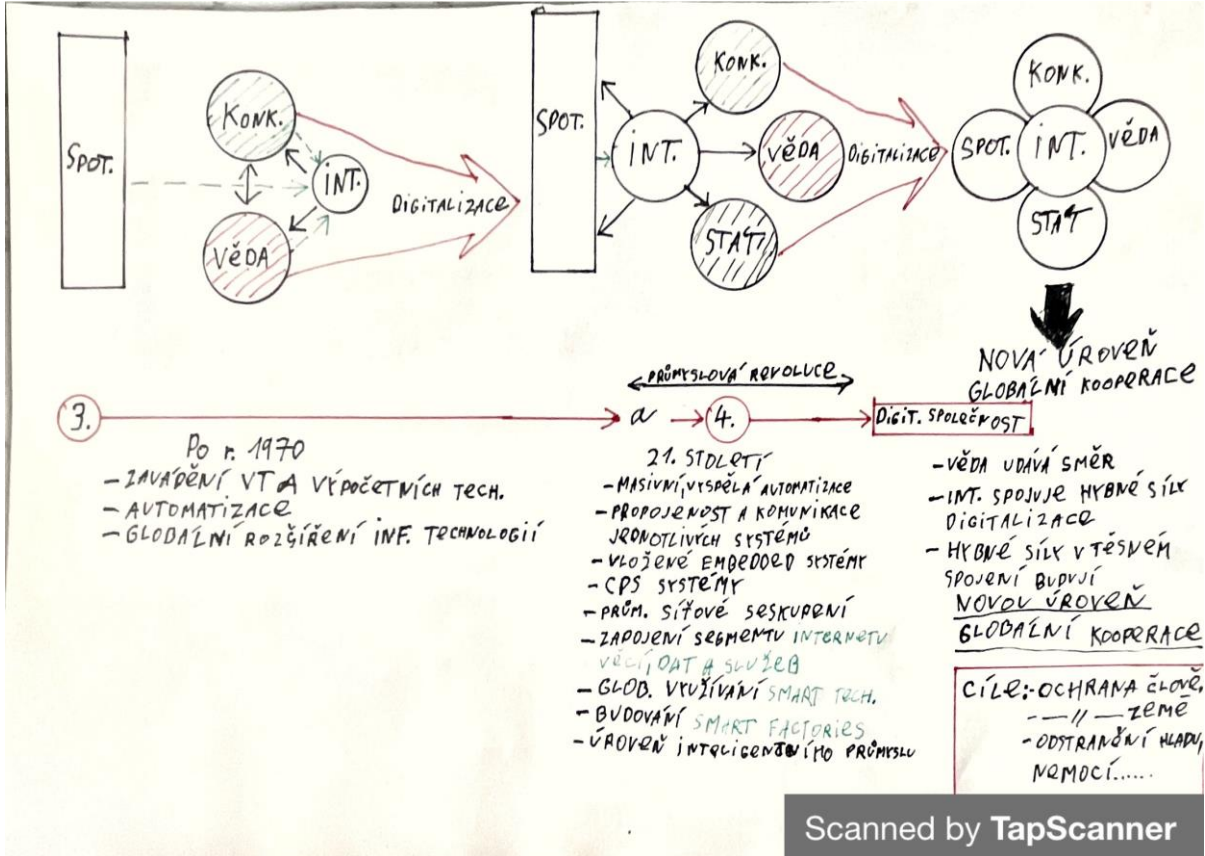 SPOT.
KONK.
INT.
VĚDA
DIGITALIZACE
SPOT.
INT.
KONK.
VĚDA
STÁT
DIGITALIZACE
KONK.
SPOT.
INT.
VĚDA
STÁT
NOVÁ ÚROVEŇ
GLOBÁLNÍ KOOPERACE
PRŮMYSLOVÁ REVOLUCE
3.
a
4.
DIGIT. SPOLEČNOST
Po r. 1970
- ZAVÁDĚNÍ VT A VÝPOČETNÍCH TECH.
- AUTOMATIZACE
- GLOBÁLNÍ ROZŠÍŘENÍ INF. TECHNOLOGIÍ
21. STOLETÍ
- MASIVNÍ, VYSPĚLÁ AUTOMATIZACE
- PROPOJENOST A KOMUNIKACE
JEDNOTLIVÝCH SYSTÉMŮ
- VLOŽENÉ EMBEDDED SYSTÉMY
- CPS SYSTÉMY
- PRŮM. SÍŤOVÉ SESKUPENÍ
- ZAPOJENÍ SEGMENTU INTERNETU
VĚCÍ, DAT A SLUŽEB
- GLOB. VYUŽÍVÁNÍ SMART TECH.
- BUDOVÁNÍ SMART FACTORIES
- ÚROVEŇ INTELIGENTNÍHO PRŮMYSLU
- VĚDA UDÁVÁ SMĚR
- INT. SPOJUJE HYBNÉ SÍLY
DIGITALIZACE
- HYBNÉ SÍLY V TĚSNÉM
SPOJENÍ BUDUJÍ
NOVOU ÚROVEŇ
GLOBÁLNÍ KOOPERACE
CÍLE: - OCHRANA ČLOVĚ.
- — // — ZEMĚ
- ODSTRANĚNÍ HLADU,
NEMOCÍ......
Scanned by TapScanner